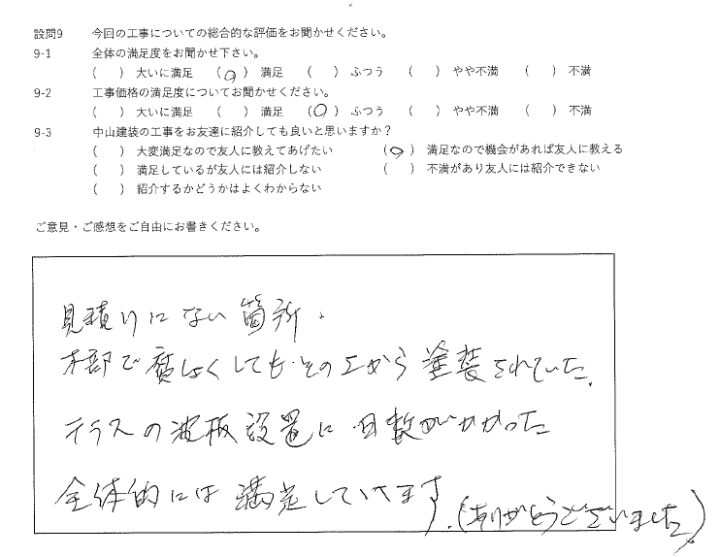 設問9　今回の工事についての総合的な評価をお聞かせください。
9-1　全体の満足度をお聞かせ下さい。
（　）大いに満足　（○）満足　（　）ふつう　（　）やや不満　（　）不満
9-2　工事価格の満足度についてお聞かせください。
（　）大いに満足　（　）満足　（○）ふつう　（　）やや不満　（　）不満
9-3　中山建装の工事をお友達に紹介しても良いと思いますか？
（　）大変満足なので友人に教えてあげたい　（○）満足なので機会があれば友人に教える
（　）満足しているが友人には紹介しない　（　）不満があり友人には紹介できない
（　）紹介するかどうかはよくわからない
ご意見・ご感想をご自由にお書きください。
見積りにない箇所、
木部で腐しょくしてもその上から塗装されていた。
テラスの波板設置に日数がかかった
全体的には満足しています。(ありがとうございました。)